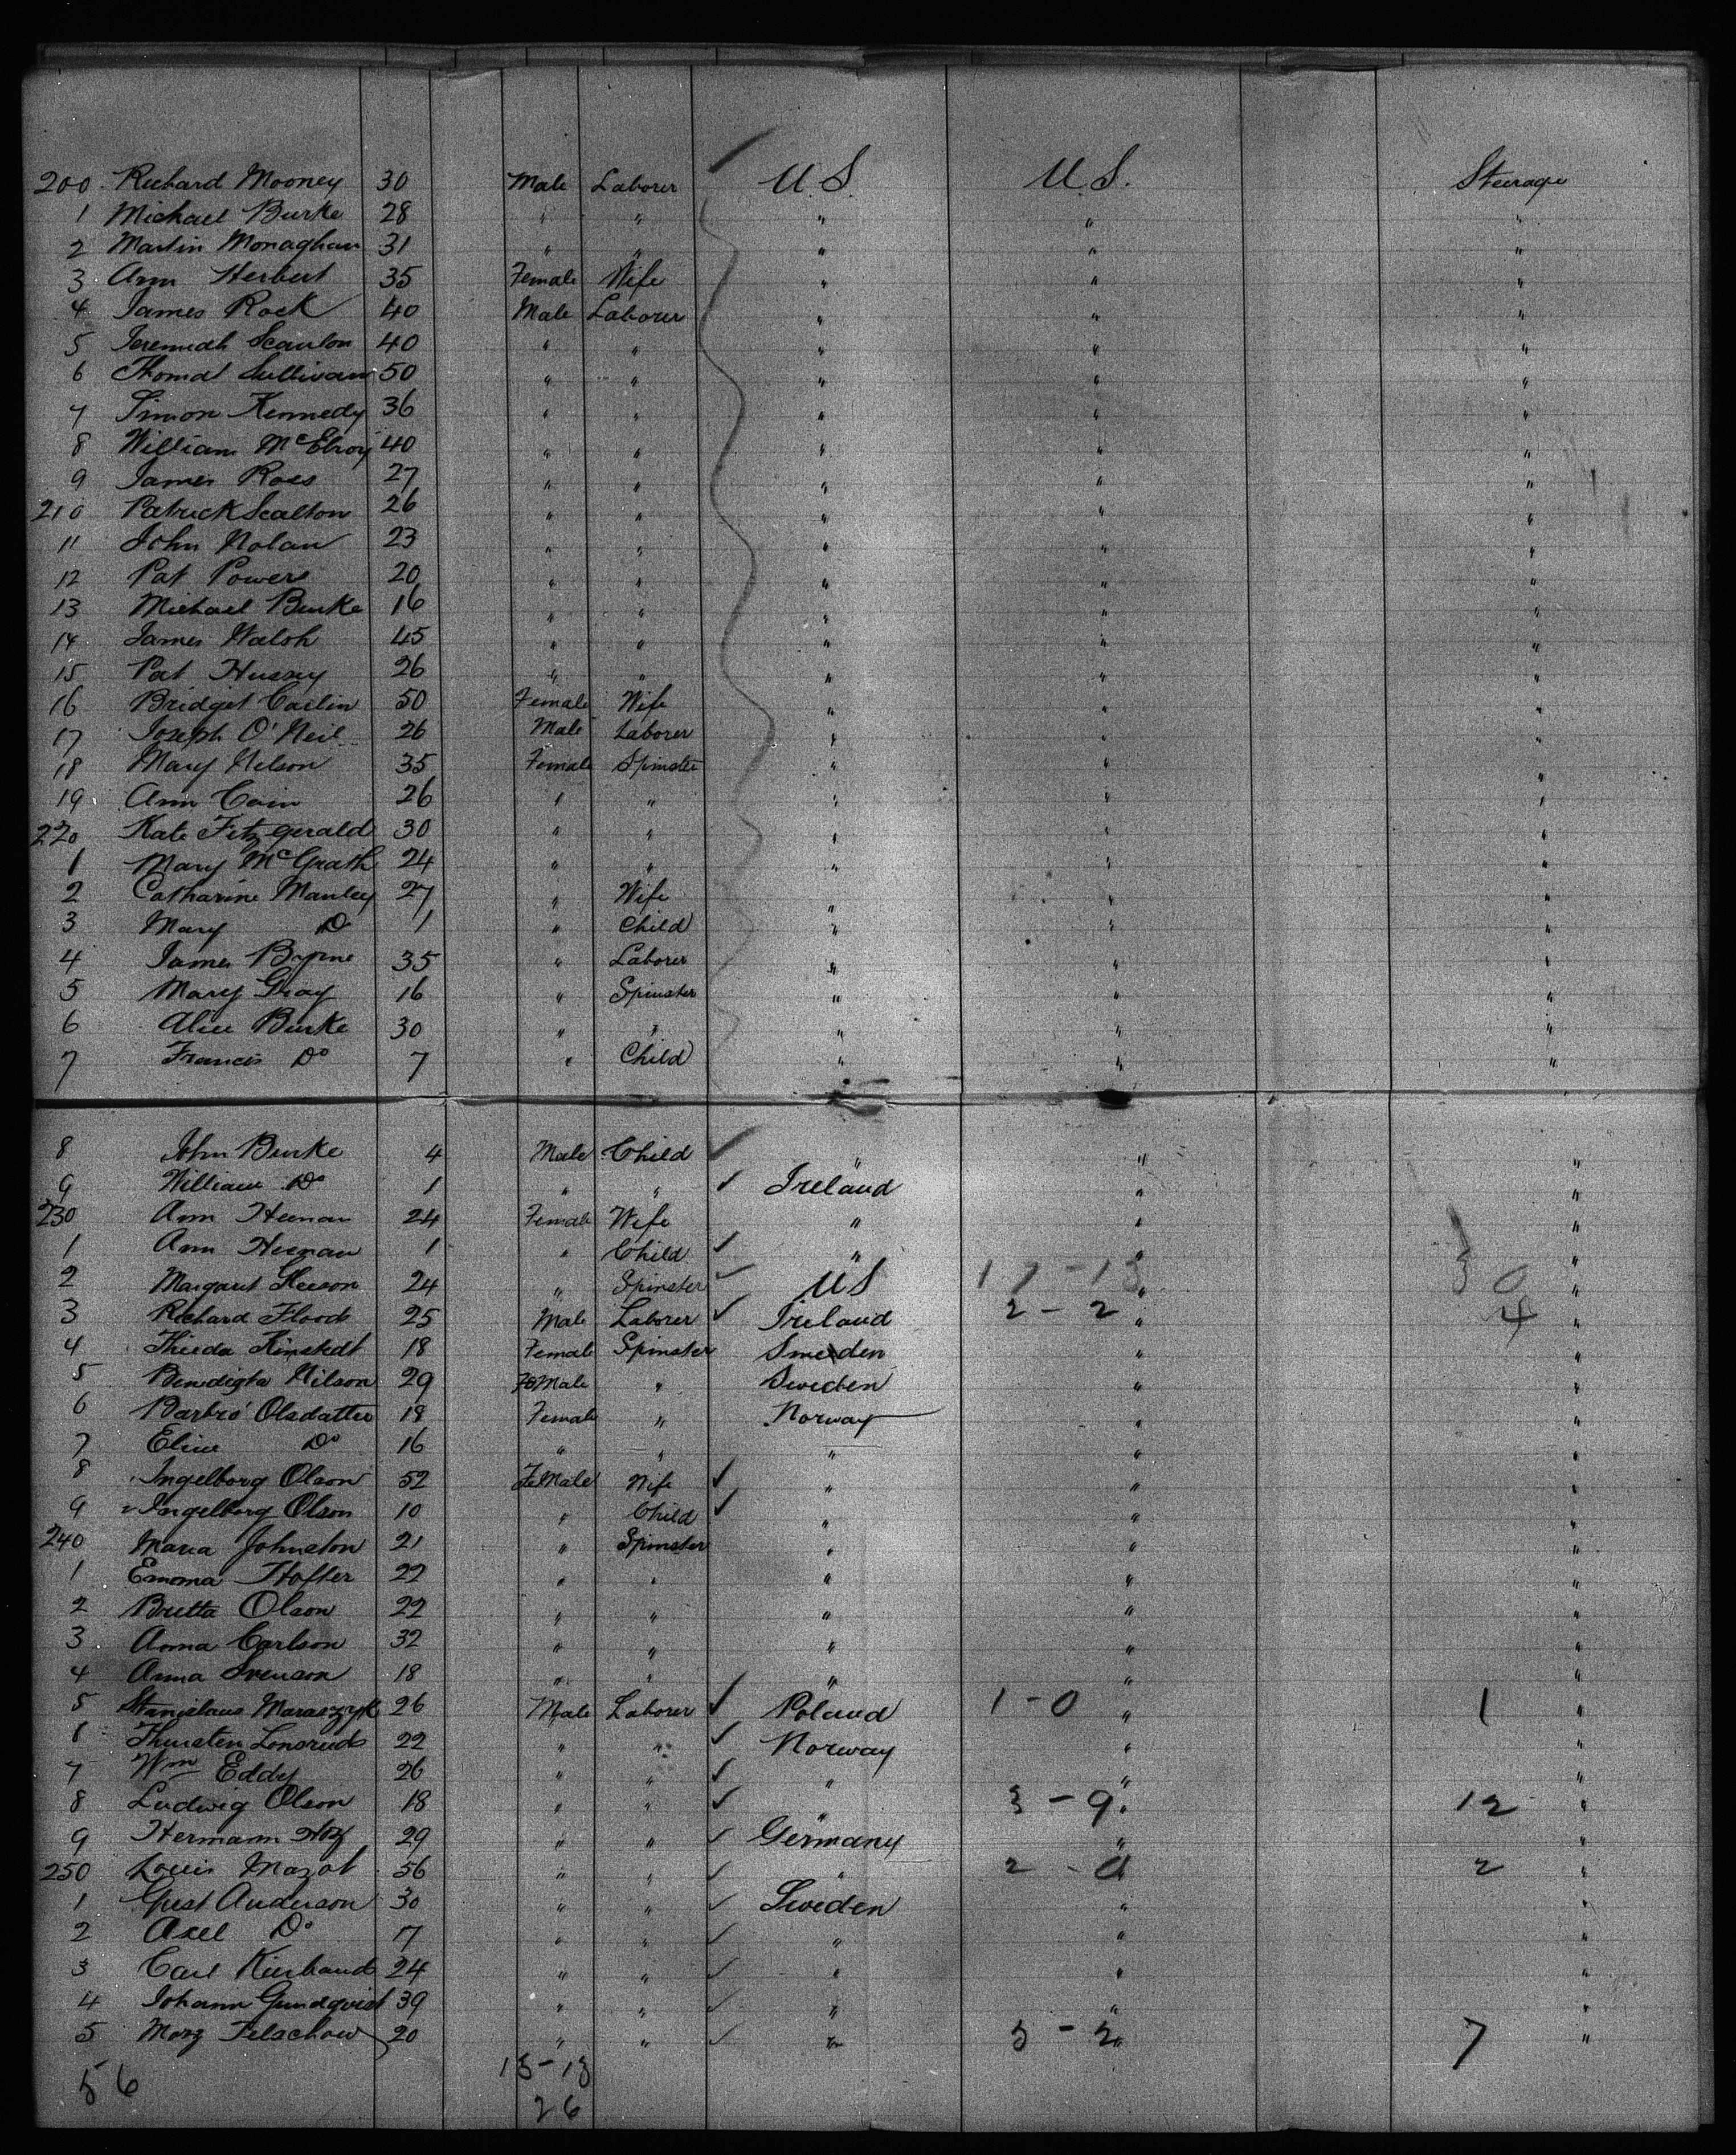 200 Richard Mooney 30 Male Laborer U.S U.S. Steerage
1 Michael Burke 28 " " " " "
2 Martin Monaghan 31 " " " " "
3 Ann Herbert 35 Female Wife " " "
4 James Rock 40 Male Laborer " " "
5 Jeremiah Scanlon 40 " " " " "
6 Thomas Sullivan 50 " " " " "
7 Simon Kennedy 36 " " " " "
8 William McElroy 40 " " " " "
9 James Ross 27 " " " " "
210 Patrick Scalton 26 " " " " "
11 John Nolan 23 " " " " "
12 Pat Powers 20 " " " " "
13 Michael Burke 16 " " " " "
14 James Walsh 45 " " " " "
15 Pat Hussey 26 " " " " "
16 Bridget Carlin 50 Female Wife " " "
17 Joseph O'Neil 26 Male Laborer " " "
18 Mary Nelson 35 Female Spinster " " "
19 Ann Cain 26 " " " " "
220 Kate Fitzgerald 30 " " " " "
1 Mary McGrath 24 " " " " "
2 Catharine Manley 27 " Wife " " "
3 Mary Do 1 " Child " " "
4 James Byrne 35 " Laborer " " "
5 Mary Gray 16 " Spinster " " "
6 Alice Burke 30 " " " " "
7 Francis Do 7 " Child " " "
8 John Burke 4 Male Child " " "
9 William Do 1 " " Ireland " "
230 Ann Heenan 24 Female Wife " " "
1 Ann Heenan 1 " Child " " "
2 Margaret 24 " Spinster U S 17 - 13 " 30 "
3 Richard Flood 25 Male Laborer Ireland 2 - 2 " 4 "
4 18 Female Spinster Sweden " "
5 Bendigta Nilson 29 FeMale " Sweden " "
6 Barbro Olsdatter 18 Female " Norway " "
7 Eline Do 16 " " " " "
8 Ingelborg Olson 52 FeMale Wife " " "
9 Ingelborg Olson 10 " Child " " "
240 Maria Johnston 21 " Spinster " " "
1 Emma Hofter 22 " " " " "
2 Britta Olson 22 " " " " "
3 Anna Carlson 32 " " " " "
4 Anna Svenson 18 " " " " "
5 Stanislaus Maraszyk 26 Male Laborer Poland 1 - 0 " 1 "
Thursten Lonsruds 22 " " Norway " "
7 Wm Eddy 26 " " " " "
8 Ludwig Olson 18 " " " 3 - 9 " 12 "
9 Hermann 29 " " Germany " "
250 Louis Mazat 56 " " " 2 - 0 2 "
1 Gust Anderson 30 " " Sweden " "
2 Axel Do 7 " " " " "
3 Carl 24 " " " " "
4 Johann Gundqvist 39 " " " " "
5 20 " " " 5 - 2 " 7 "
56 13 - 13
26